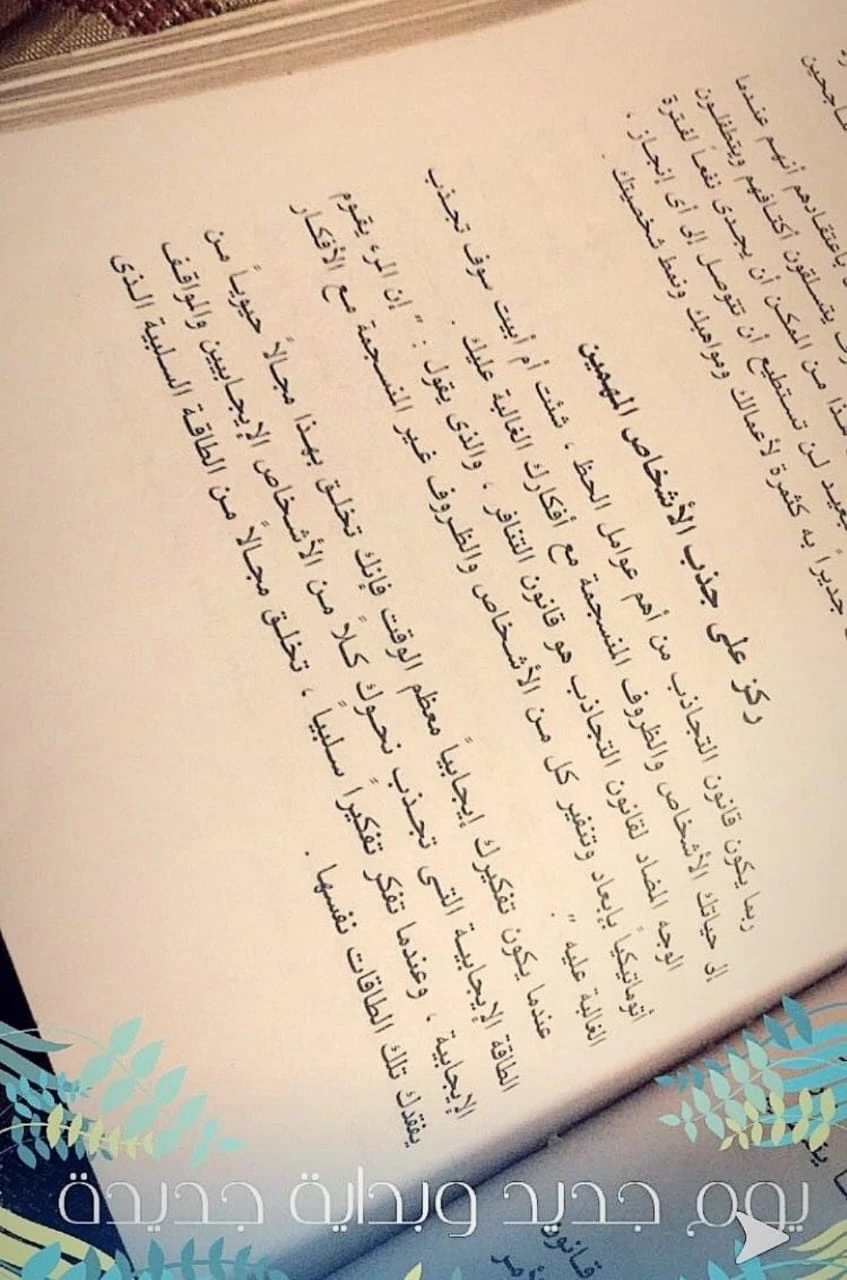 ـاجحين
باعتقادهم أنهم عندما
يتسلقون أكتافهم ويتطفلون
من الممكن أن يجدى نفعاً لفترة
لن تستطيع أن تتوصل إلى أى إنجاز ،
جديراً به كثمرة لأعمالك ومواهبك ونمط شخصيتك .
ركز على جذب الأشخاص المهمين
ربما يكون قانون التجاذب من أهم عوامل الحظ ، شئت أم أبيت سوف تجذب
إلى حياتك الأشخاص والظروف المنسجمة مع أفكارك الغالبة عليك .
الوجه المضاد لقانون التجاذب هو قانون التنافر ، والذى يقول : " إن المرء يقوم
أتوماتيكياً بإبعاد وتنفير كل من الأشخاص والظروف غير المنسجمة مع الأفكار
الغالبة عليه " .
عندما يكون تفكيرك إيجابياً معظم الوقت فإنك تخلق بهذا مجالاً حيوياً من
الطاقة الإيجابية التى تجذب نحوك كلاً من الأشخاص الإيجابيين والمواقف
الإيجابية ، وعندما تفكر تفكيراً سلبياً ، تخلق مجالاً من الطاقة السلبية الذى
يفقدك تلك الطاقات نفسها .
قانون
يوم جديد وبداية جديدة